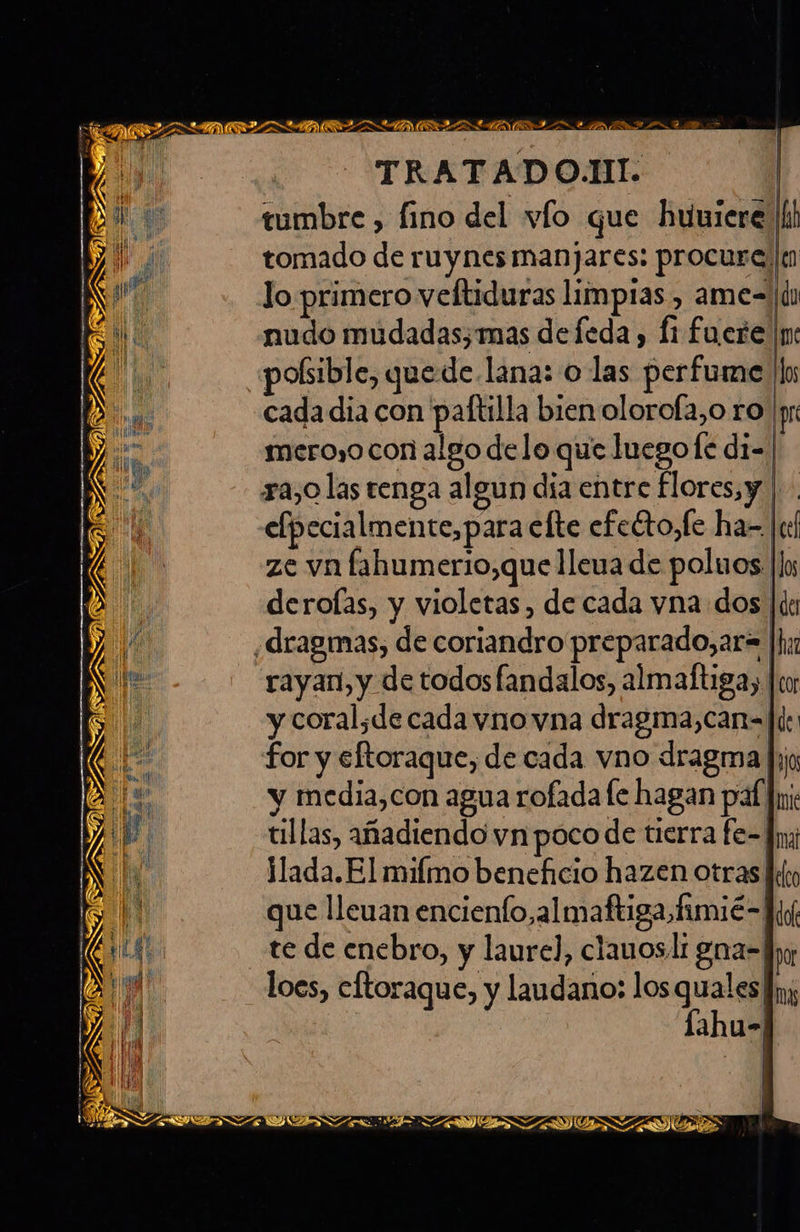 TRATADO.III.
tumbre, ſino del vſo que huuiere
tomado de ruynes manjares: procure
lo primero veſtiduras limpias, ame-
nudo mudadas; mas de ſeda, ſi fuere
poſsible, que de lana: o las perfume
cada dia con paſtilla bien oloroſa, o ro
mero, o con algo de lo que luego ſe di-
ra, o las tenga algun dia entre flores, y
eſpecialmente, para eſte efecto, ſe ha-
ze vn ſahumerio, que lleua de poluos
de roſas, y violetas, de cada vna dos
dragmas, de coriandro preparado, ar=
rayan, y de todos ſandalos, almaſtiga,
y coral, de cada vno vna dragma, can-
for y eſtoraque, de cada vno dragma
y media, con agua roſada ſe hagan paſ
tillas, añadiendo vn poco de tierra ſe-
llada. El miſmo beneficio hazen otras
que lleuan encienſo, almaſtiga, ſimié-
te de enebro, y laurel, clauos li gna-
loes, eſtoraque, y laudano: los quales
ſahu-